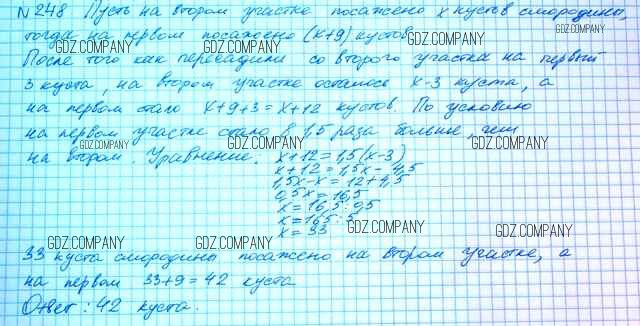 N 248 Пусть на втором участке посажено x кустов смородины,
тогда на первом посажено (x+9) кустов.
GDZ.COMPANY GDZ.COMPANY GDZ.COMPANY
После того как пересадили со второго участка на первый
3 куста, на втором участке осталось x-3 куста, а
на первом стало x+9+3=x+12 кустов. По условию
на первом участке стало в 1,5 раза больше, чем
GDZ.COMPANY GDZ.COMPANY GDZ.COMPANY
на втором. Уравнение: x+12=1,5(x-3)
x+12=1,5x-4,5
1,5x-x=12+4,5
0,5x=16,5
x=16,5:0,5
x=165:5
x=33
GDZ.COMPANY GDZ.COMPANY GDZ.COMPANY
33 куста смородины посажено на втором участке, а
на первом 33+9=42 куста
Ответ: 42 куста.